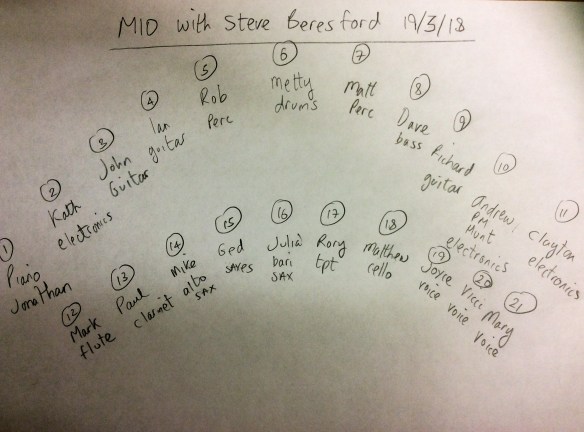 MIO with Steve Beresford 19/3/18
1
Piano
Jonathan
2
Kath
electronics
3
John
Guitar
4
Ian
guitar
5
Rob
Perc
6
Metty
drums
7
Matt
Perc
8
Dave
bass
9
Richard
guitar
10
Andrew
PM
Hunt
electronics
11
Clayton
electronics
12
Mark
flute
13
Paul
clarinet
14
Mike
alto
SAX
15
Ged
saxes
16
Julia
bari
SAX
17
Rory
tpt
18
Matthew
cello
19
Joyce
voice
20
Vicci
voice
21
Mary
voice